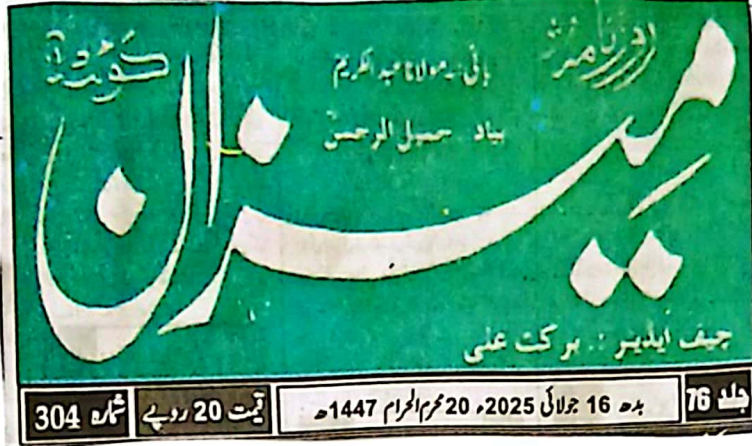 روزنامہ
میزان
کوئٹہ
بانی :۔ مولانا عبدالکریمؒ
بیاد ۔ جمیل الرحمنؒ
چیف ایڈیٹر :۔ برکت علی
جلد 76
بدھ 16 جولائی 2025ء 20 محرم الحرام 1447ھ
قیمت 20 روپے
شمارہ 304